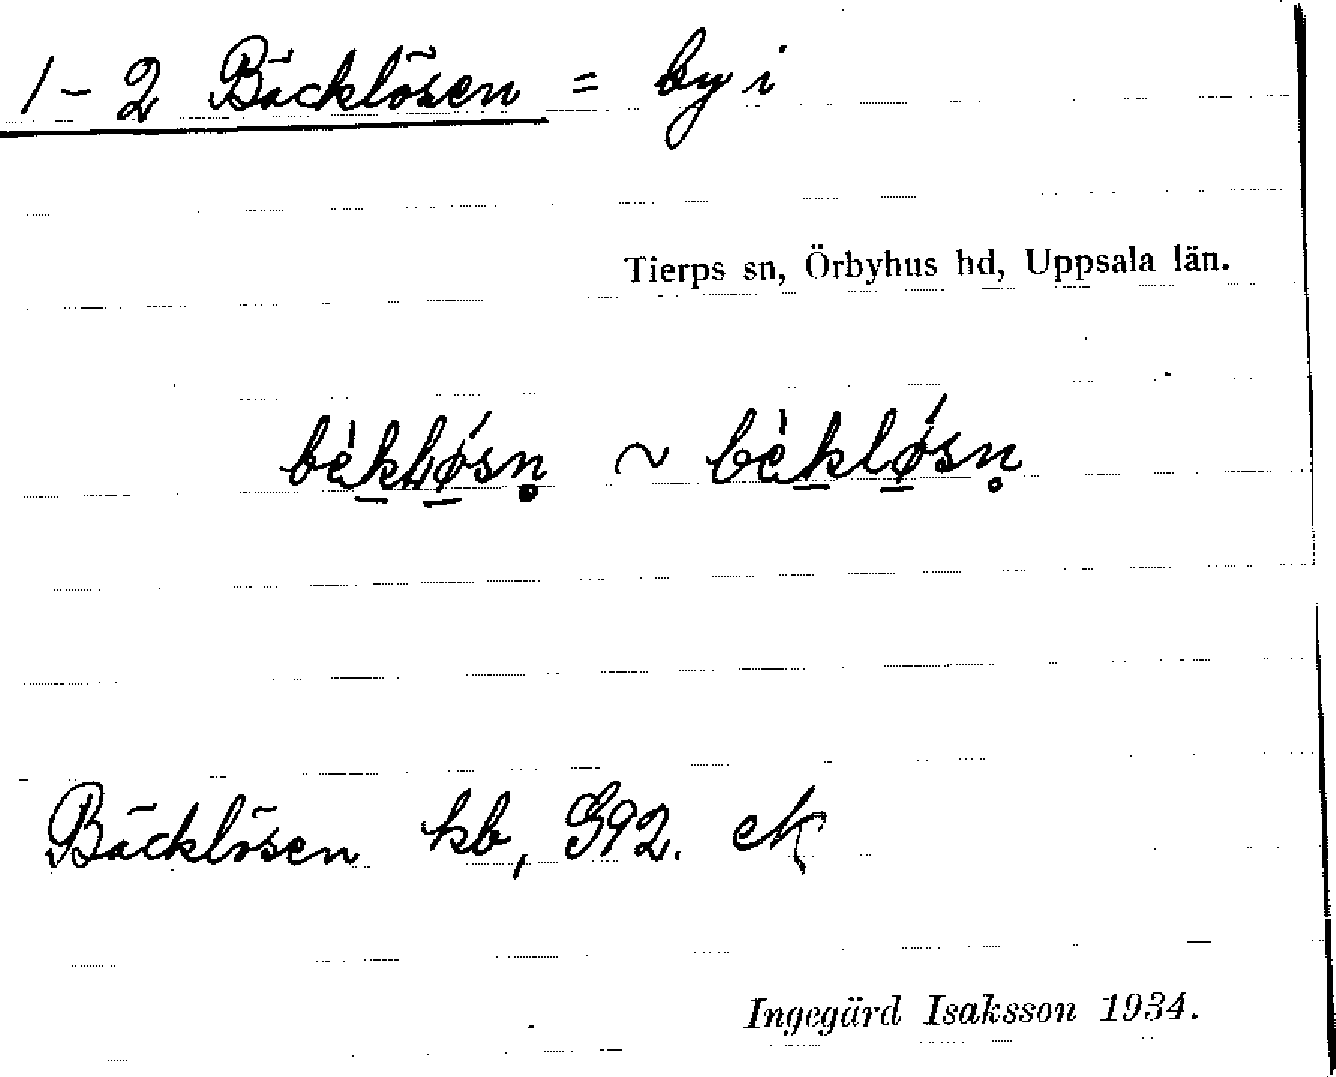 1-2 Bäcklösen = by i
Tierps sn, Örbyhus hd, Uppsala län.
~
Bäcklösen kb, G92. ek
Ingegärd Isaksson 1934.